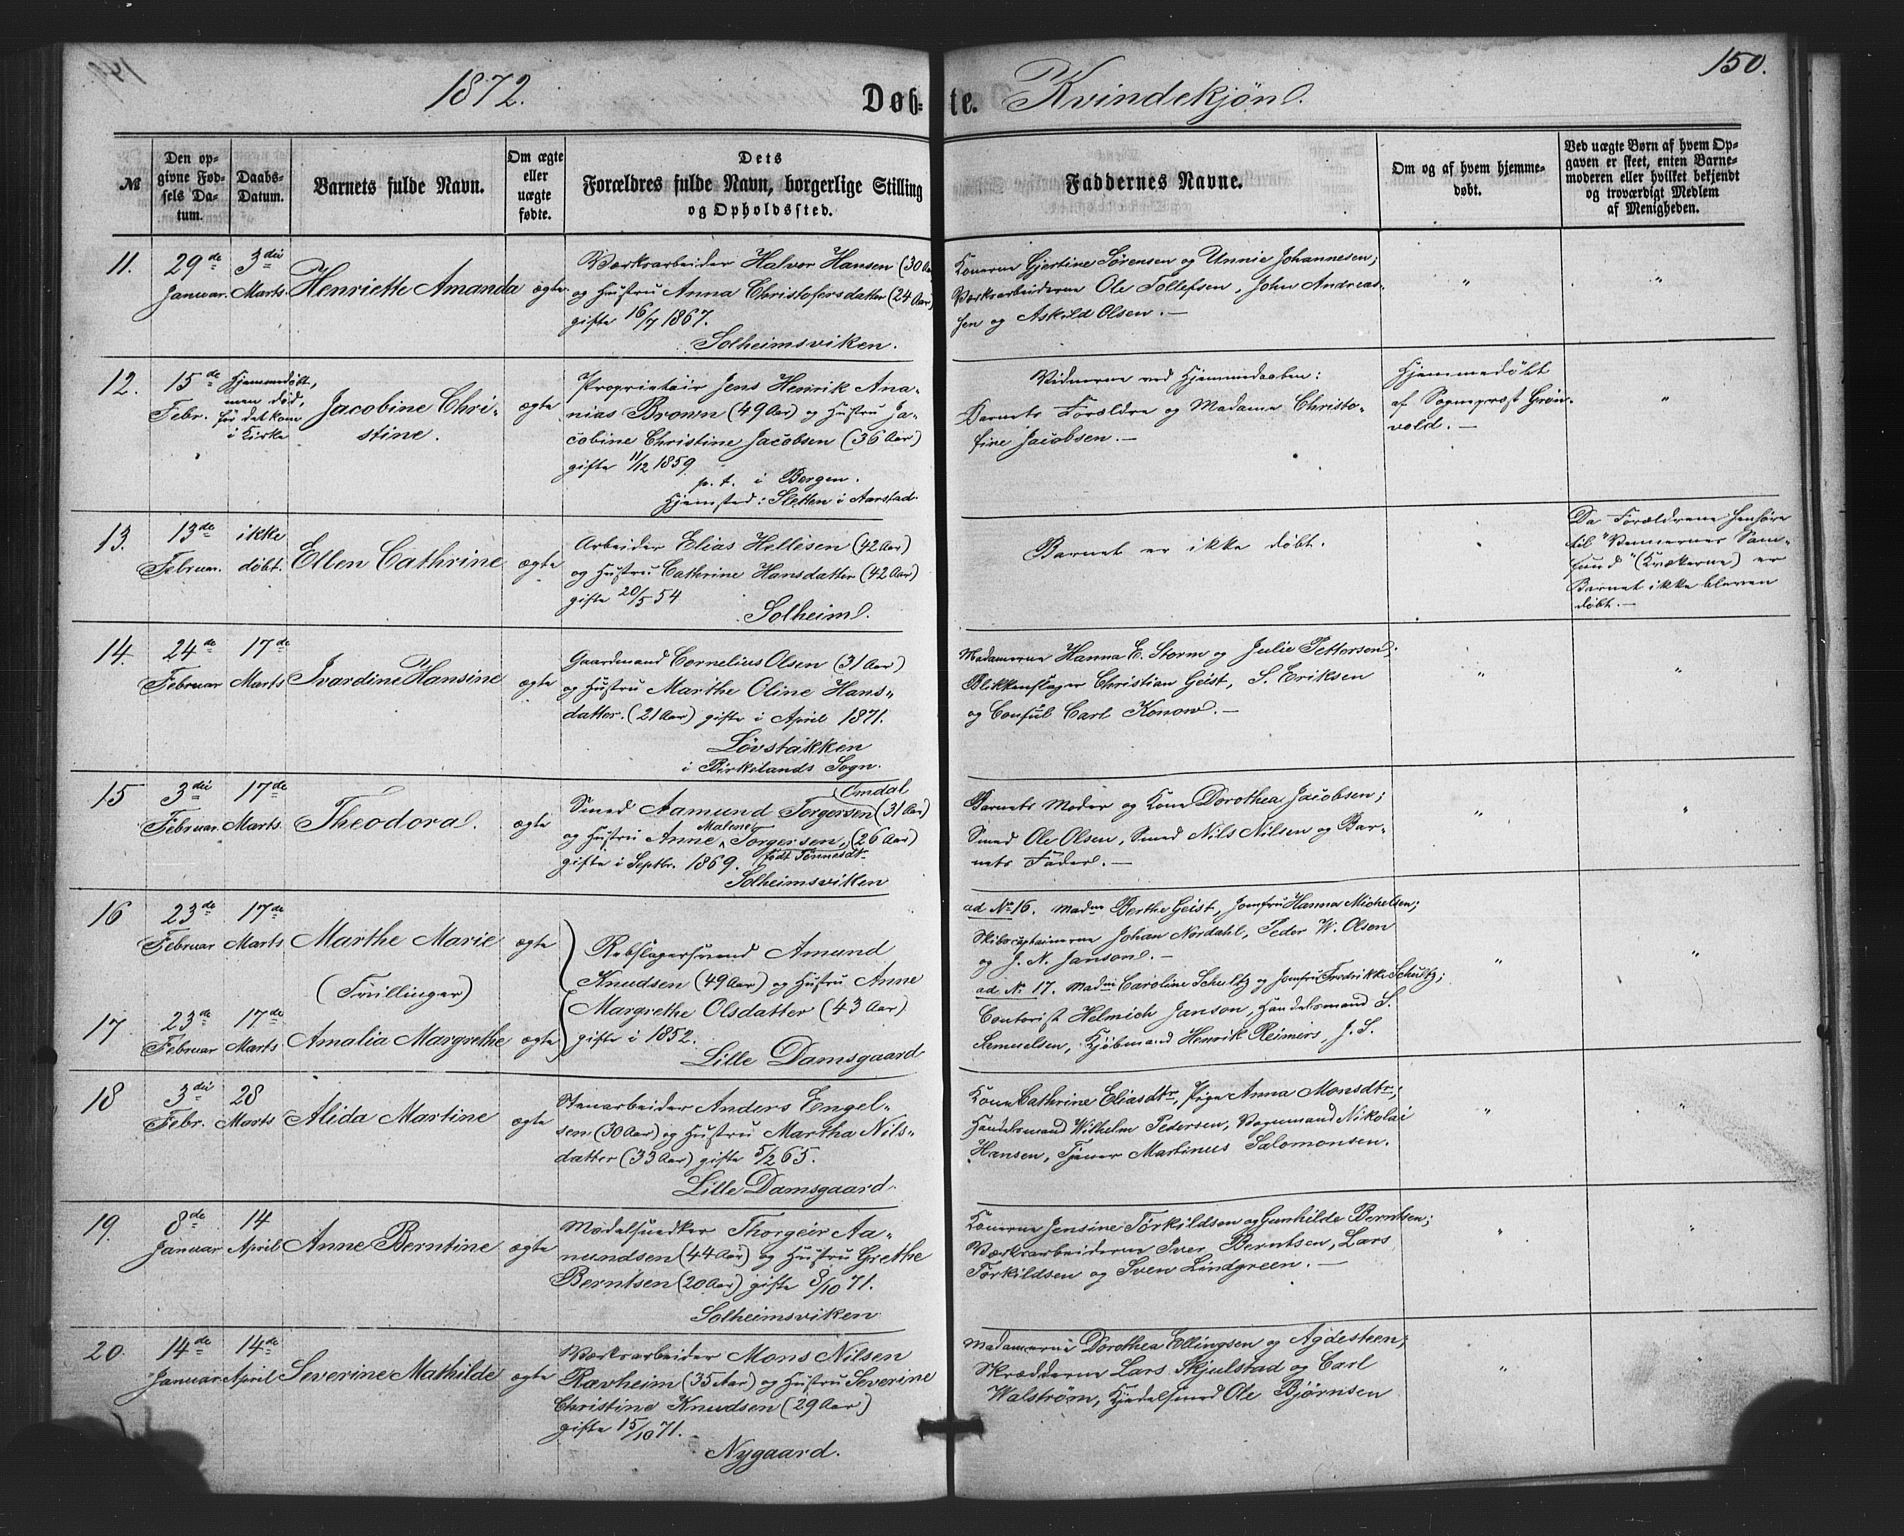 1872.
Døb-te.
Kvindekjøn.
150.
№
Den opgivne Fødsels Datum.
Daabs-Datum.
Barnets fulde Navn.
Om ægte eller uægte fødte.
Dets Forældres fulde Navn, borgerlige Stilling og Opholdssted.
Faddernes Navne.
Om og af hvem hjemmedøbt.
Ved uægte Børn af hvem Opgaven er skeet, enten Barnemoderen eller hvilket bekjendt og troværdigt Medlem af Menigheden.
11.
29de Januar.
3die Marts.
Henriette Amanda
ægte
Værksarbeider Halvor Hansen (30 Aar)
og Hustru Anna Christofersdatter (24 Aar)
gifte 16/7 1867.
Solheimsviken.
Konerne Gjertine Sørensen og Unnie Johannesen;
Værksarbeiderne Ole Tollefsen, John Andreas-
sen og Askild Olsen. —
"
"
12.
15de Febr.
Hjemmedøbt,
men død,
før det kom
i Kirke
Jacobine Chri-
stine.
ægte
Proprietair Jens Henrik Ana-
nias Brown (49 Aar) og Hustru Ja-
cobine Christine Jacobsen (36 Aar)
gifte 11/12 1859.
p. t. i Bergen.
Hjemsted: Sletten i Aarstad.
Vidnerne ved Hjemmedaaben:
Barnets Forældre og Madame Christo-
fine Jacobsen. —
Hjemmedøbt
af Sognepræst Grøn-
vold. —
"
13.
13de Februar.
ikke døbt.
Ellen Cathrine
ægte
Arbeider Elias Hellesen (42 Aar)
og Hustru Cathrine Hansdatter (42 Aar)
gifte 20/5 54
Solheim.
Barnet er ikke døbt.
Da Forældrene henhøre
til "Vennernes Sam-
fund" (Kvækerne) er
Barnet ikke bleven
døbt. —
14.
24de Februar
17de Marts
Ivardine Hansine
ægte
Gaardmand Cornelius Olsen (31 Aar)
og Hustru Marthe Oline Hans-
datter. (21 Aar) gifte i April 1871.
Løvstakken
i Birkelands Sogn.
Madamerne Hanna E. Storm og Julie Pettersen;
Blikkenslager Christian Geist, S. Eriksen
og Consul Carl Konow. —
"
"
15
3die Februar
17de Marts.
Theodora.
ægte
Omdal
Smed Aamund Torgersen (31 Aar)
og Hustru Anne Malene Torgersen, (26 Aar)
født Tønnesdtr
gifte i Septbr. 1869.
Solheimsviken
Barnets Moder og Kone Dorothea Jacobsen;
Smed Ole Olsen, Smed Nils Nilsen og Bar-
nets Fader. —
"
"
16
23de Februar
17de Marts
Marthe Marie
ægte
(Tvillinger)
Rebslagersvend Amund
Knudsen (49 Aar) og Hustru Anne
Margrethe Olsdatter (43 Aar)
gifte i 1852.
Lille Damsgaard
ad No 16. Madm Berthe Geist, Jomfru Hanna Michelsen;
Skibscaptainerne Johan Nordahl, Peder W. Olsen
og J. N. Janson. —
ad No 17. Madm Caroline Schultz og Jomfru Fredrikke Schultz;
Contorist Helmich Janson, Handelsmand S.
Lemuelsen, Kjøbmand Henrik Reimers, J. S.
"
"
17.
23de Februar
17de Marts
Amalia Margrethe
ægte
18
3die Febr.
28 Marts
Alida Martine
ægte
Stenarbeider Anders Engel-
sen (30 Aar) og Hustru Martha Nils-
datter (33 Aar) gifte 5/2 65.
Lille Damsgaard.
Kone Cathrine Eliasdtr, Pige Anna Monsdtr;
Handelsmand Wilhelm Pedersen, Vognmand Nikolai
Hansen, Tjener Martinus Salomonsen.
"
"
19.
8de Januar
14 April
Anne Berntine
ægte
Modelsnedker Thorgeir Aa-
mundsen (44 Aar) og Hustru Grethe
Berntsen (20 Aar) gifte 8/10 71.
Solheimsviken
Konerne Jensine Torkildsen og Gunhilde Berntsen;
Værksarbeiderne Iver Berntsen, Lars
Torkildsen og Sven Lindgreen. —
"
"
20.
14de Januar
14de April
Severine Mathilde
ægte
Værksarbeider Mons Nilsen
Ravheim (35 Aar) og Hustru Severine
Christine Knudsen (29 Aar)
gifte 15/10 71.
Nygaard.
Madamerne Dorothea Ellingsen og Agdesteen;
Skrædderne Lars Skjulstad og Carl
Walstrøm, Kjedelsmed Ole Bjørnsen
"
"